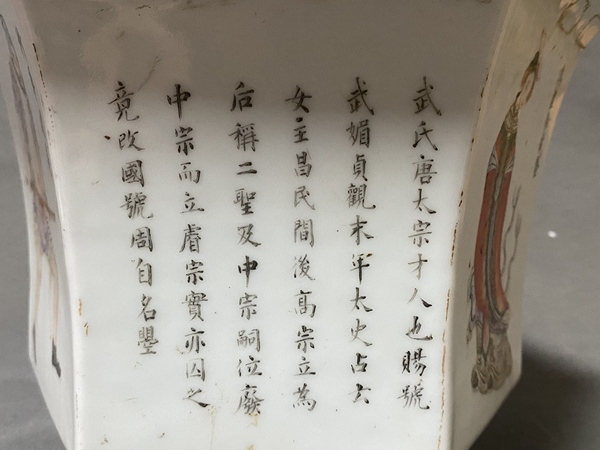 武氏唐太宗才人也賜號
武媚貞觀末年太史占云
女主昌民間後高宗立為
后稱二聖及中宗嗣位廢
中宗而立睿宗實亦囚之
竟改國號周自名曌